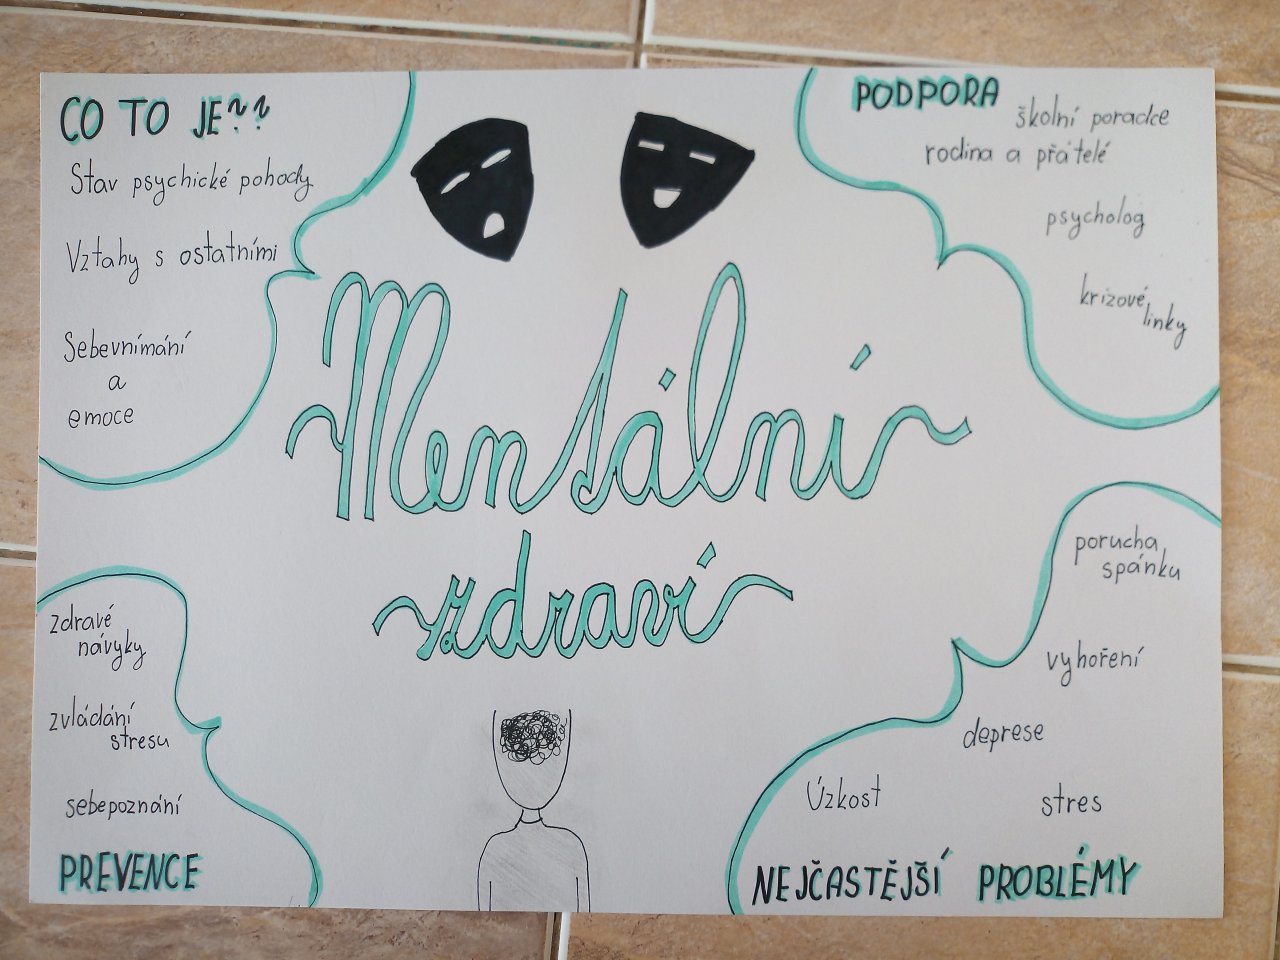 CO TO JE??
Stav psychické pohody
Vztahy s ostatními
Sebevnímání
a
emoce
PODPORA
školní poradce
rodina a přátelé
psycholog
krizové
linky
Mentální
zdraví
zdravé
návyky
zvládání
stresu
sebepoznání
PREVENCE
porucha
spánku
vyhoření
deprese
Úzkost
stres
NEJČASTĚJŠÍ PROBLÉMY